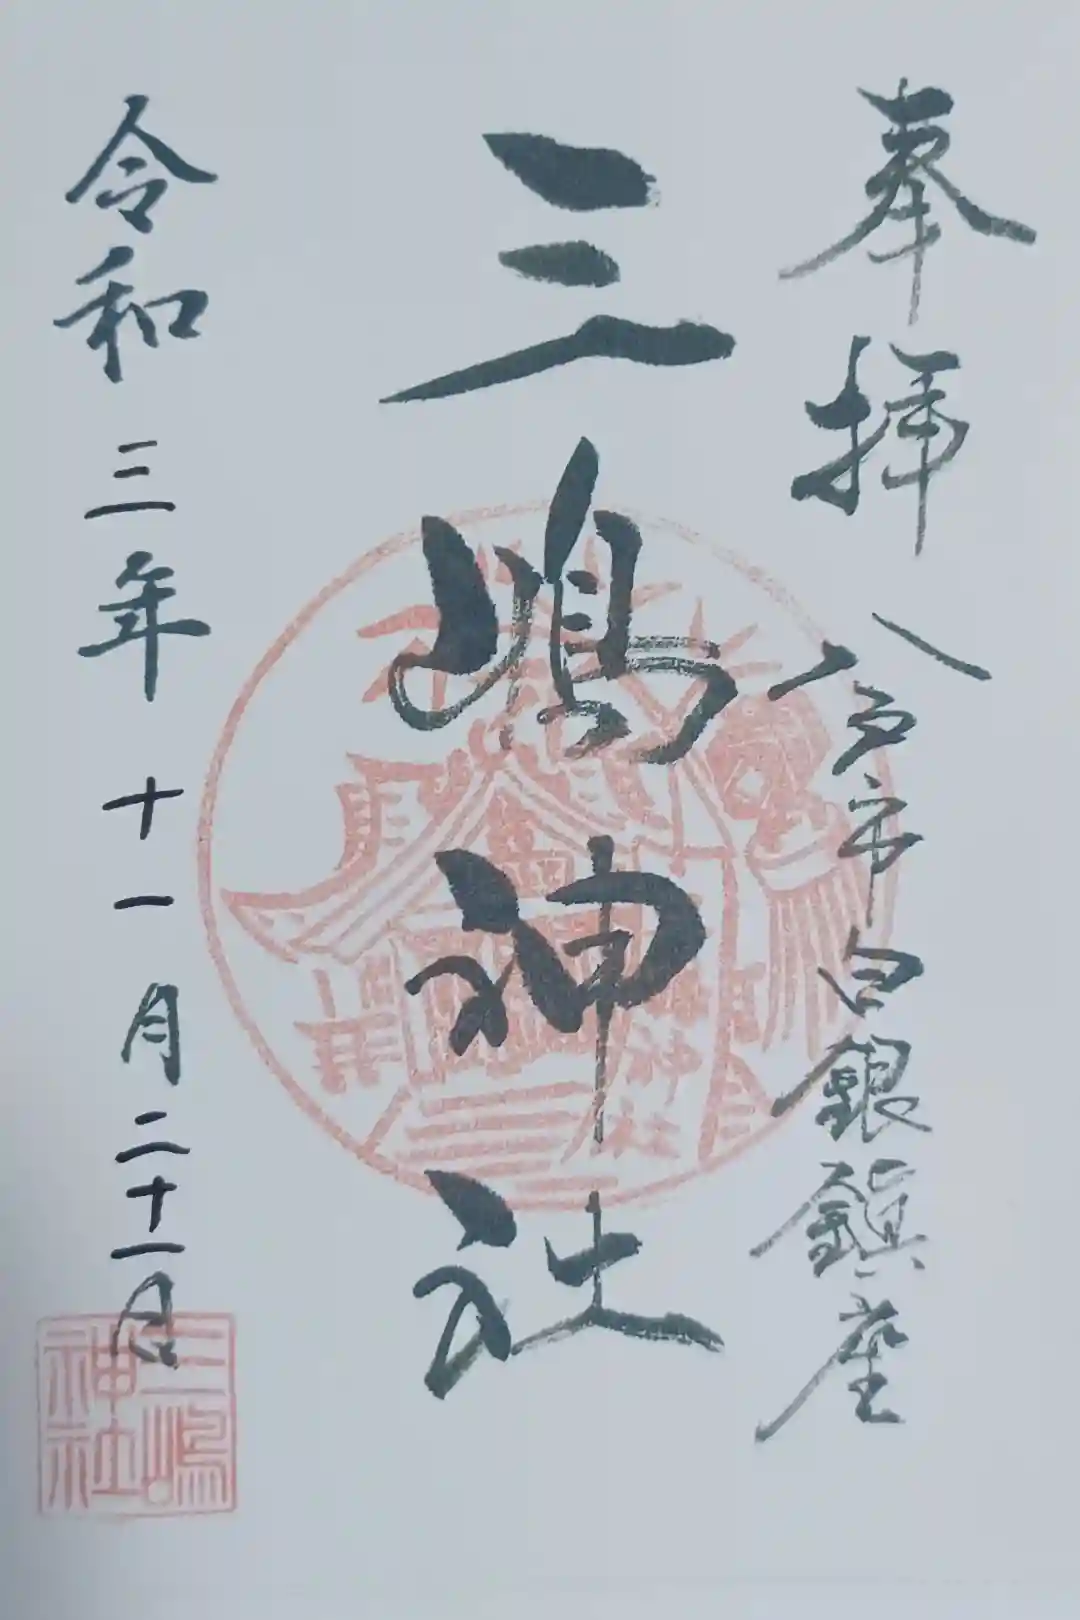 奉拝 八戸市白銀鎮座
三嶋神社
令和三年十一月二十一日
三嶋
神社